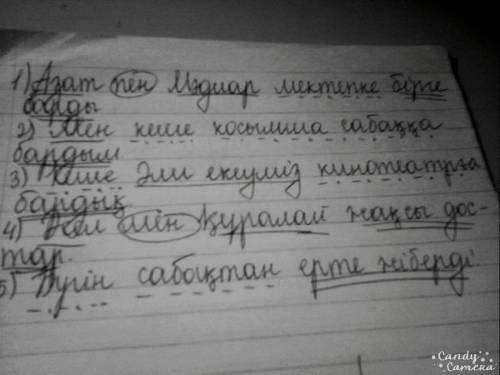 1) Азат пен Мәдиар мектепке бірге
барды
2) Мен кеше косымша сабаққа
бардым
3) Кеше Әли екеуміз кинотеатрға
бардық
4) мен Құралай жақсы дос-
тар.
5) Бүгін сабақтан ерте жіберді.
Candy
Camera